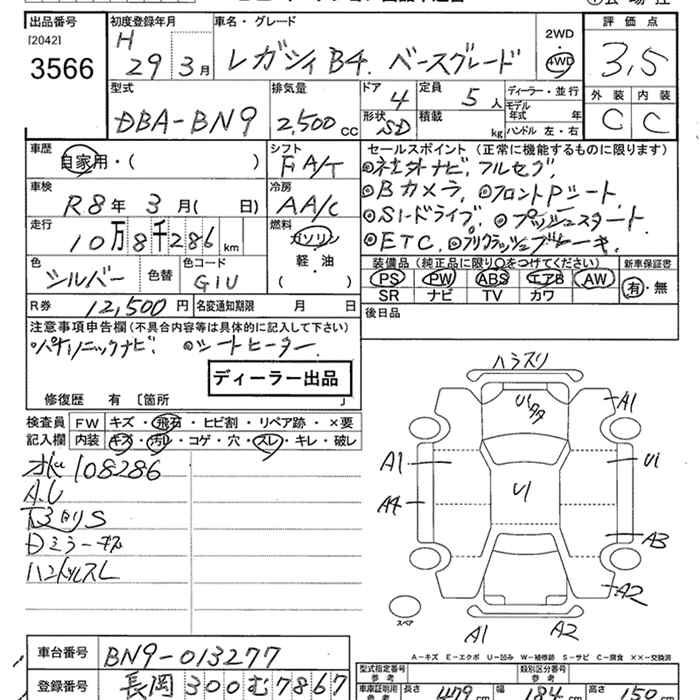 出品番号 初度登録年月 車名・グレード 2WD 評価点
[2042] H 29年3月 レガシィ B4. ベースグレード 4WD 3,5
3566
外装 内装
C C
型式 排気量 ドア 4 定員 5人 ディーラー・並行
DBA-BN9 2,500cc 形状 SD 積載 kg モデル年式 年
ハンドル 左・右
車歴 シフト セールスポイント (正常に機能するものに限ります)
自家用・( ) F A/T ◎社外ナビ, フルセグ,
車検 冷房 ◎Bカメラ, ◎フロントPシート,
R8年3月( 日) AA/C ◎SIードライブ, ◎プッシュスタート,
走行 燃料 ◎ETC, ◎プリクラッシュブレーキ,
10万8千286km ガソリン
軽・油
( )
色 色替 色コード 装備品 (純正品に限り○をつけてください) 新車保証書
シルバー G1U PS PW ABS エアB AW 有・無
SR ナビ TV カワ
R券 12,500円 名変通知期限 月 日 後日品
注意事項申告欄(不具合内容等は具体的に記入して下さい)
◎パナソニックナビ, ◎シートヒーター,
ディーラー出品
修復歴 有 〔箇所 〕
検査員 FW キズ・飛石・ヒビ割・リペア跡・×要
記入欄 内装 キズ・汚レ・コゲ・穴・スレ・キレ・破レ
108286
A.U
Dミラーキズ
ハンドルスレ
ハラスリ
U1
A1
A1
U1
U1
A4
A3
A2
スペア
A1
A2
A－キズ E－エクボ U－凹み W－補修跡 S－サビ C－腐食 ××－交換済
車台番号 BN9-013277 型式指定番号 参考 類別区分番号 参考
登録番号 長岡300む7867 車庫証明用 参考 長さ 479cm 幅 184cm 高さ 150cm